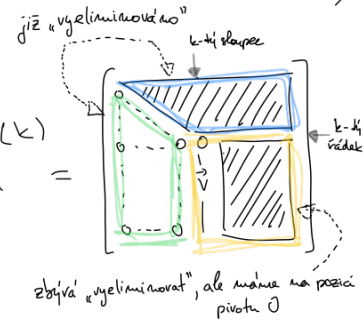 již „vyeliminováno"
k-tý sloupec
(k)
=
k-tý
řádek
0
→
v
zbývá „vyeliminovat", ale máme na pozici
pivotu 0